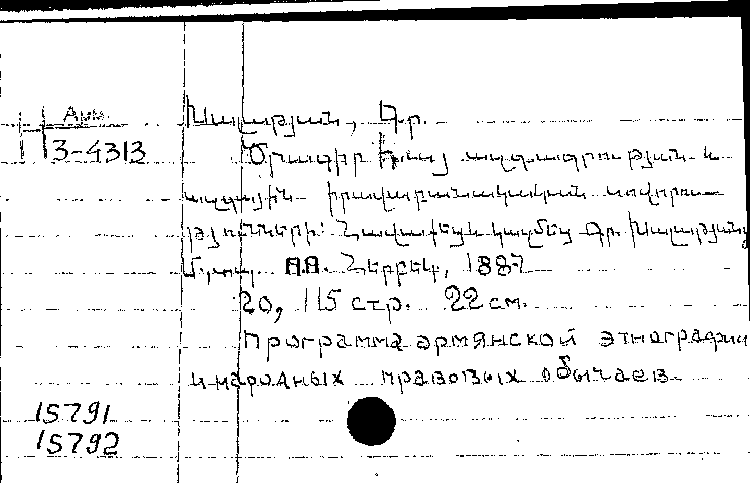 Арм.
3-4313
Խալաթյան, Գր.
Ծրագիր հայ ազգագրության և
ազգային իրավաբանական սովորու-
թյունների: Նախագծեց և կազմեց Գր. Խալաթյանց
Մոսկ. 1887
20, 115 стр. 22 см.
Программа армянской этнографии
и народных правовых обычаев
15791
15792